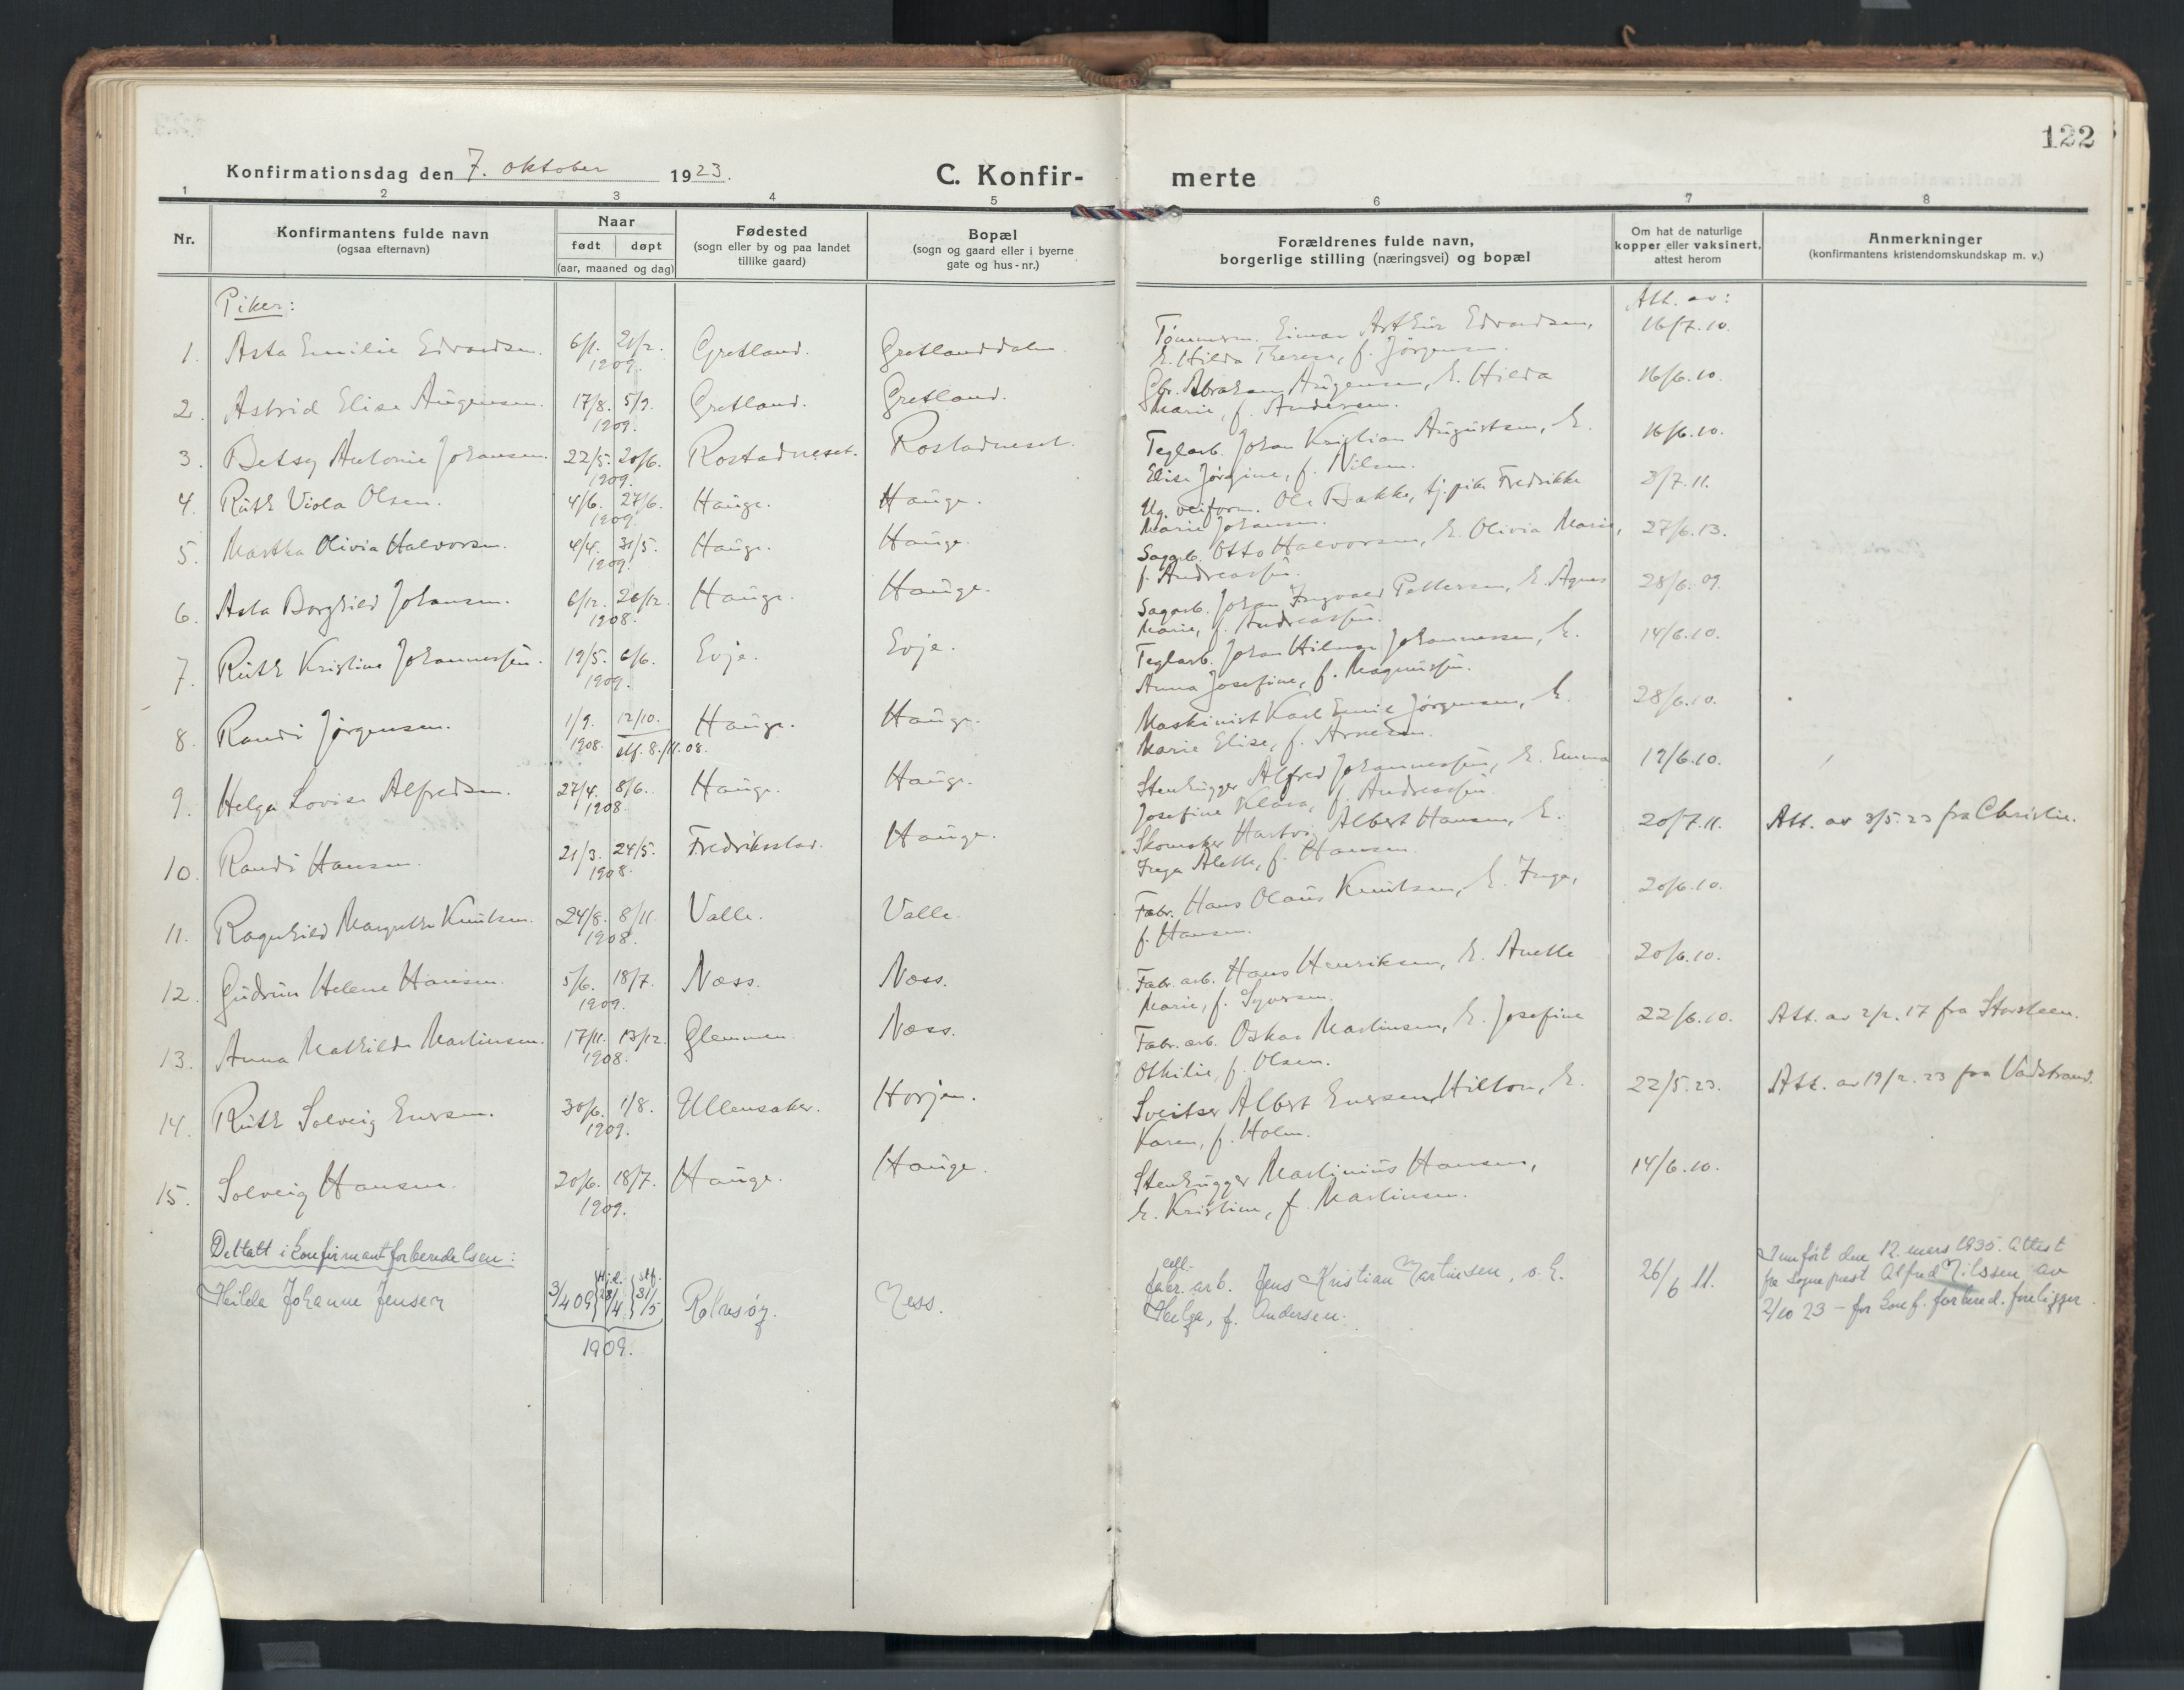 122
Konfirmationsdag den 7. oktober 1923.
C. Konfir-
merte
1 2 3 4 5 6 7 8
Nr.
Konfirmantens fulde navn
(ogsaa efternavn)
Naar
født døpt
(aar, maaned og dag)
Fødested
(sogn eller by og paa landet
tillike gaard)
Bopæl
(sogn og gaard eller i byerne
gate og hus-nr.)
Forældrenes fulde navn,
borgerlige stilling (næringsvei) og bopæl
Om hat de naturlige
kopper eller vaksinert,
attest herom
Anmerkninger
(konfirmantens kristendomskundskap m. v.)
Piker:
Att. av:
1. Asta Emilie Edvardsen. 6/1. 21/2. 1909. Gretland. Gretlanddalen. Tømmerm. Einar Arthur Edvardsen, 16/7.10.
h. Hilda Therese, f. Jørgensen.
2. Astrid Elise Augensen. 17/8. 5/9. 1909. Gretland. Gretland. Gbr. Abraham Augensen, h. Hilda 16/6.10.
Marie, f. Andersen.
3. Betsy Antonie Johansen. 22/5. 20/6. 1909. Rostadneset. Rostadneset. Teglarb. Johan Kristian Augustsen, h. 16/6.10.
Elise Jørgine, f. Nilsen.
4. Ruth Viola Olsen. 4/6. 27/6. 1909. Hauge. Hauge. Ug. veiform. Ole Bakke, tj.pike Fredrikke 3/7.11.
Marie Johansen.
5. Martha Olivia Halvorsen. 4/4. 31/5. 1909. Hauge. Hauge. Sagarb. Otto Halvorsen, h. Olivia Marie, 27/6.13.
f. Andreassen.
6. Asta Borghild Johansen. 6/12. 26/12. 1908. Hauge. Hauge. Sagarb. Johan Ingvald Pettersen, h. Agnes 28/6.09.
Marie, f. Andreassen.
7. Ruth Kristine Johannessen. 19/5. 6/6. 1909. Evje. Evje. Teglarb. Johan Hilmar Johannessen, h. 14/6.10.
Anna Josefine, f. Magnussen.
8. Randi Jørgensen. 1/9. 1908. 12/10. stf. 8./11.08. Hauge. Hauge. Maskinist Karl Emil Jørgensen, h. 28/6.10.
Marie Elise, f. Arnesen.
9. Helga Lovise Alfredsen. 27/4. 8/6. 1908. Hauge. Hauge. Stenhugger Alfred Johannessen, h. Emma 19/6.10.
Josefine Klara, f. Andreassen.
10. Randi Hansen. 21/3. 24/5. 1908. Fredrikstad. Hauge. Skomaker Hartvig Albert Hansen, h. 20/7.11. Att. av 3/5.23 fra Christie.
Inga Alette, f. Hansen.
11. Ragnhild Margrethe Knutsen. 24/8. 8/11. 1908. Valle. Valle. Fabr. Hans Olaus Knutsen, h. Inga, 20/6.10.
f. Hansen.
12. Gudrun Helene Hansen. 5/6. 18/7. 1909. Næss. Næss. Fabr. arb. Hans Henriksen, h. Anette 20/6.10.
Marie, f. Syversen.
13. Anna Mathilde Martinsen. 17/11. 13/12. 1908. Glemmen. Næss. Fabr. arb. Oskar Martinsen, h. Josefine 22/6.10. Att. av 2/2.17 fra Storsteen.
Othilie, f. Olsen.
14. Ruth Solveig Enersen. 30/6. 1/8. 1909. Ullensaker. Horjen. Sveitser Albert Enersen Hilton, h. 22/5.23. Att. av 19/2.23 fra Vadstrand.
Karen, f. Holm.
15. Solveig Hansen. 20/6. 18/7. 1909. Hauge. Hauge. Stenhugger Martinius Hansen, 14/6.10.
h. Kristine, f. Martinsen.
Deltatt i konfirmantforberedelsen:
Hilda Johanne Jensen 3/4 09 Hjd. 28/4 stf. 31/5 1909. Rolvsøy. Ness. cell.
fabr. arb. Jens Kristian Martinsen, o. h. 26/6 11.
Helga, f. Andersen.
Innført den 12. mars 1935. Attest
fra sogneprest Alfred Nilssen av
2/10 23 – for konf. forbered. foreligger.